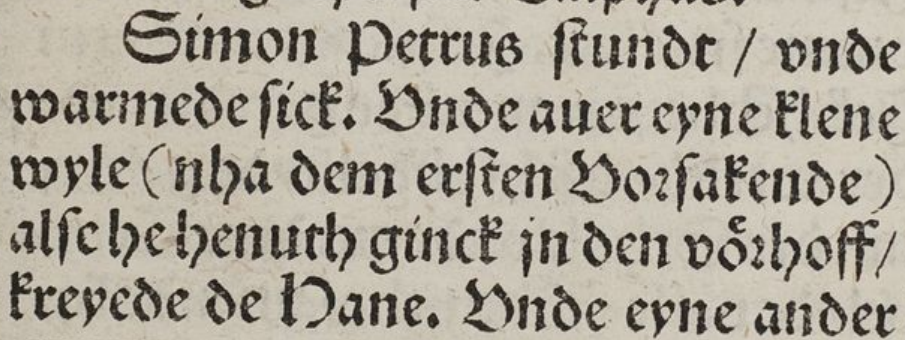 Simon Petrus ſtundt / vnde
warmede ſick. Vnde auer eyne klene
wyle (nha dem erſten Vorſakende)
alſe he henuth ginck jn den vo̊rhoff /
kreyede de Hane. Vnde eyne ander